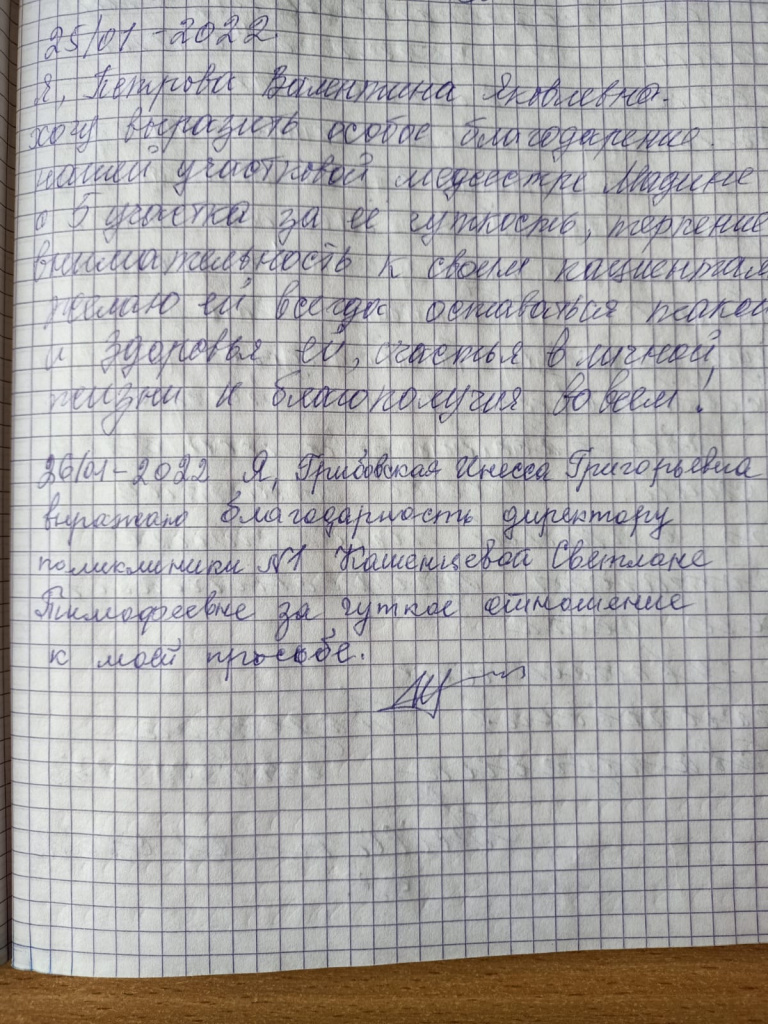 25/01-2022
Я, Петрова Валентина Яковлевна.
хочу выразить особое благодарение
нашей участковой медсестре Мадине
с 5 участка за её чуткость, терпение
внимательность к своем пациентам
желаю ей всегда оставаться такой
и здоровья ей, счастья в личной
жизни и благополучия во всем!
26/01-2022 Я, Грибовская Инесса Григорьевна
выражаю благодарность директору
поликлиники №1 Кашенцевой Светлане
Тимофеевне за чуткое отношение
к моей просьбе.